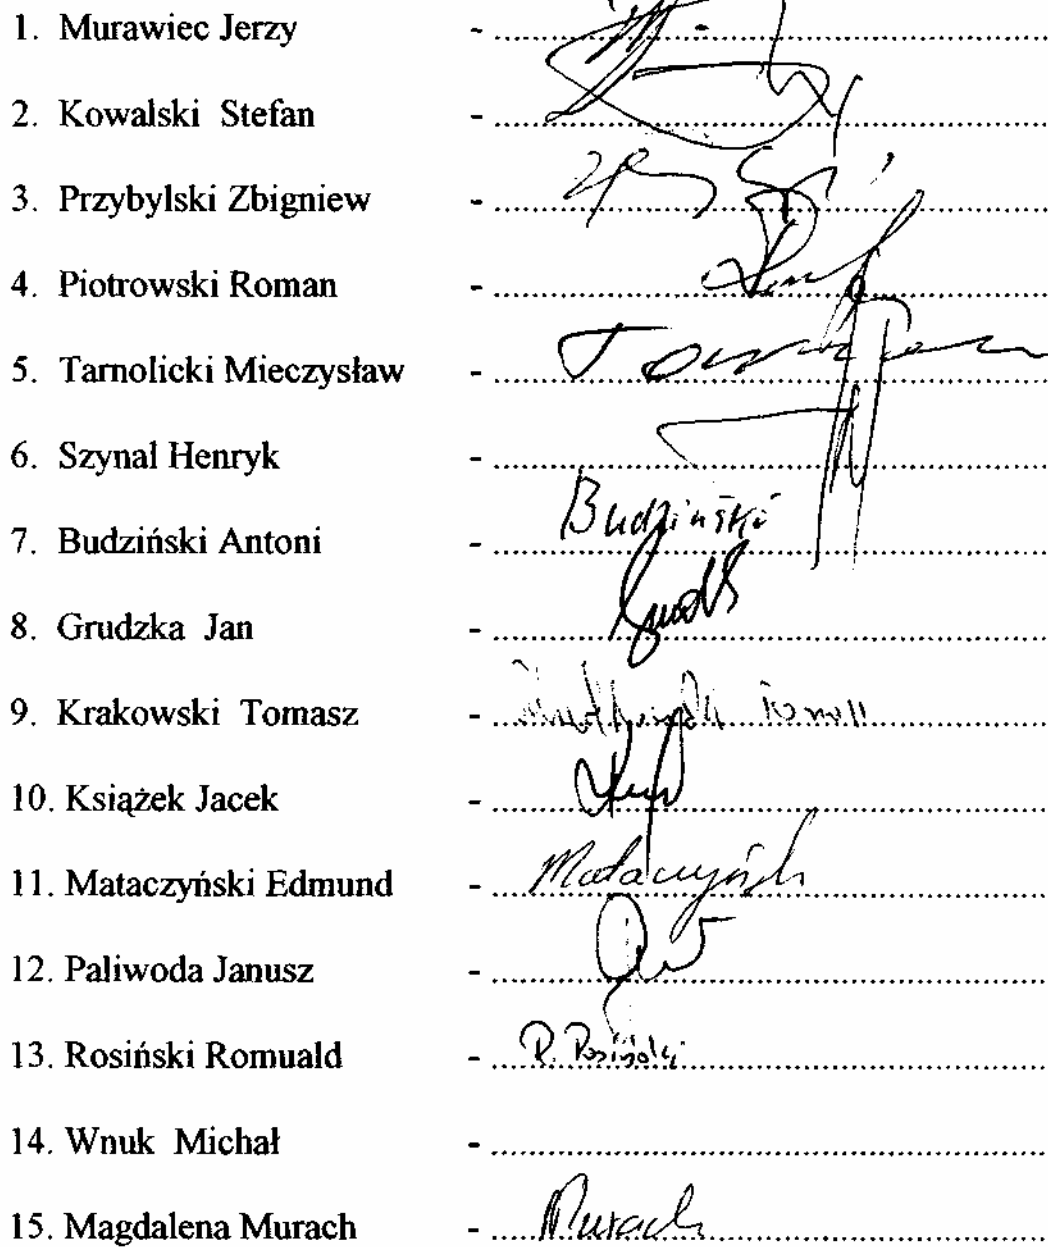 1. Murawiec Jerzy - ....................
2. Kowalski Stefan - ....................
3. Przybylski Zbigniew - ....................
4. Piotrowski Roman - ....................
5. Tarnolicki Mieczysław - ....................
6. Szynal Henryk - ....................
7. Budziński Antoni - Budziński
8. Grudzka Jan - ....................
9. Krakowski Tomasz - ....................
10. Książek Jacek - ....................
11. Mataczyński Edmund - Mataczyński
12. Paliwoda Janusz - ....................
13. Rosiński Romuald - R. Rosiński
14. Wnuk Michał - ....................
15. Magdalena Murach - Murach